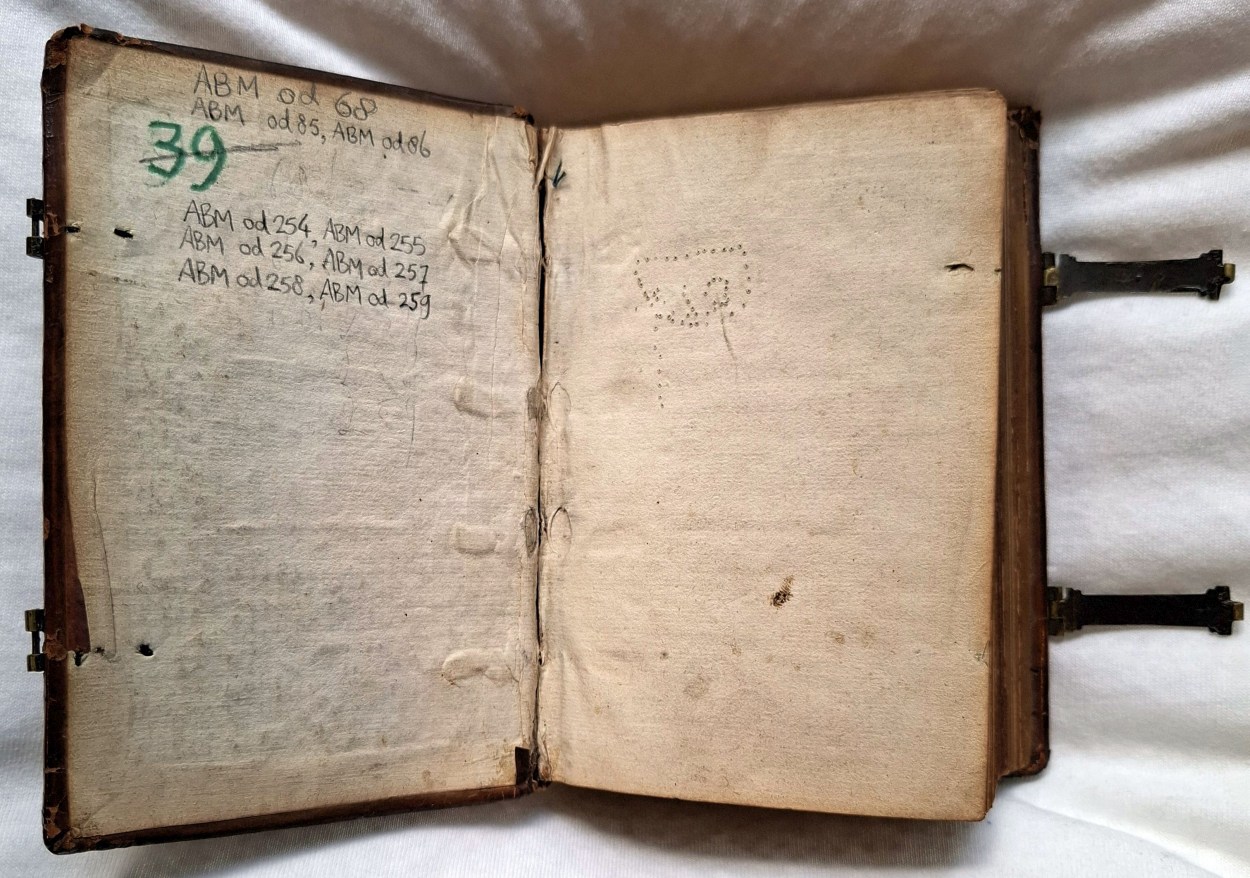 ABM od 68
ABM od 85, ABM od 86
39
ABM od 254, ABM od 255
ABM od 256, ABM od 257
ABM od 258, ABM od 259